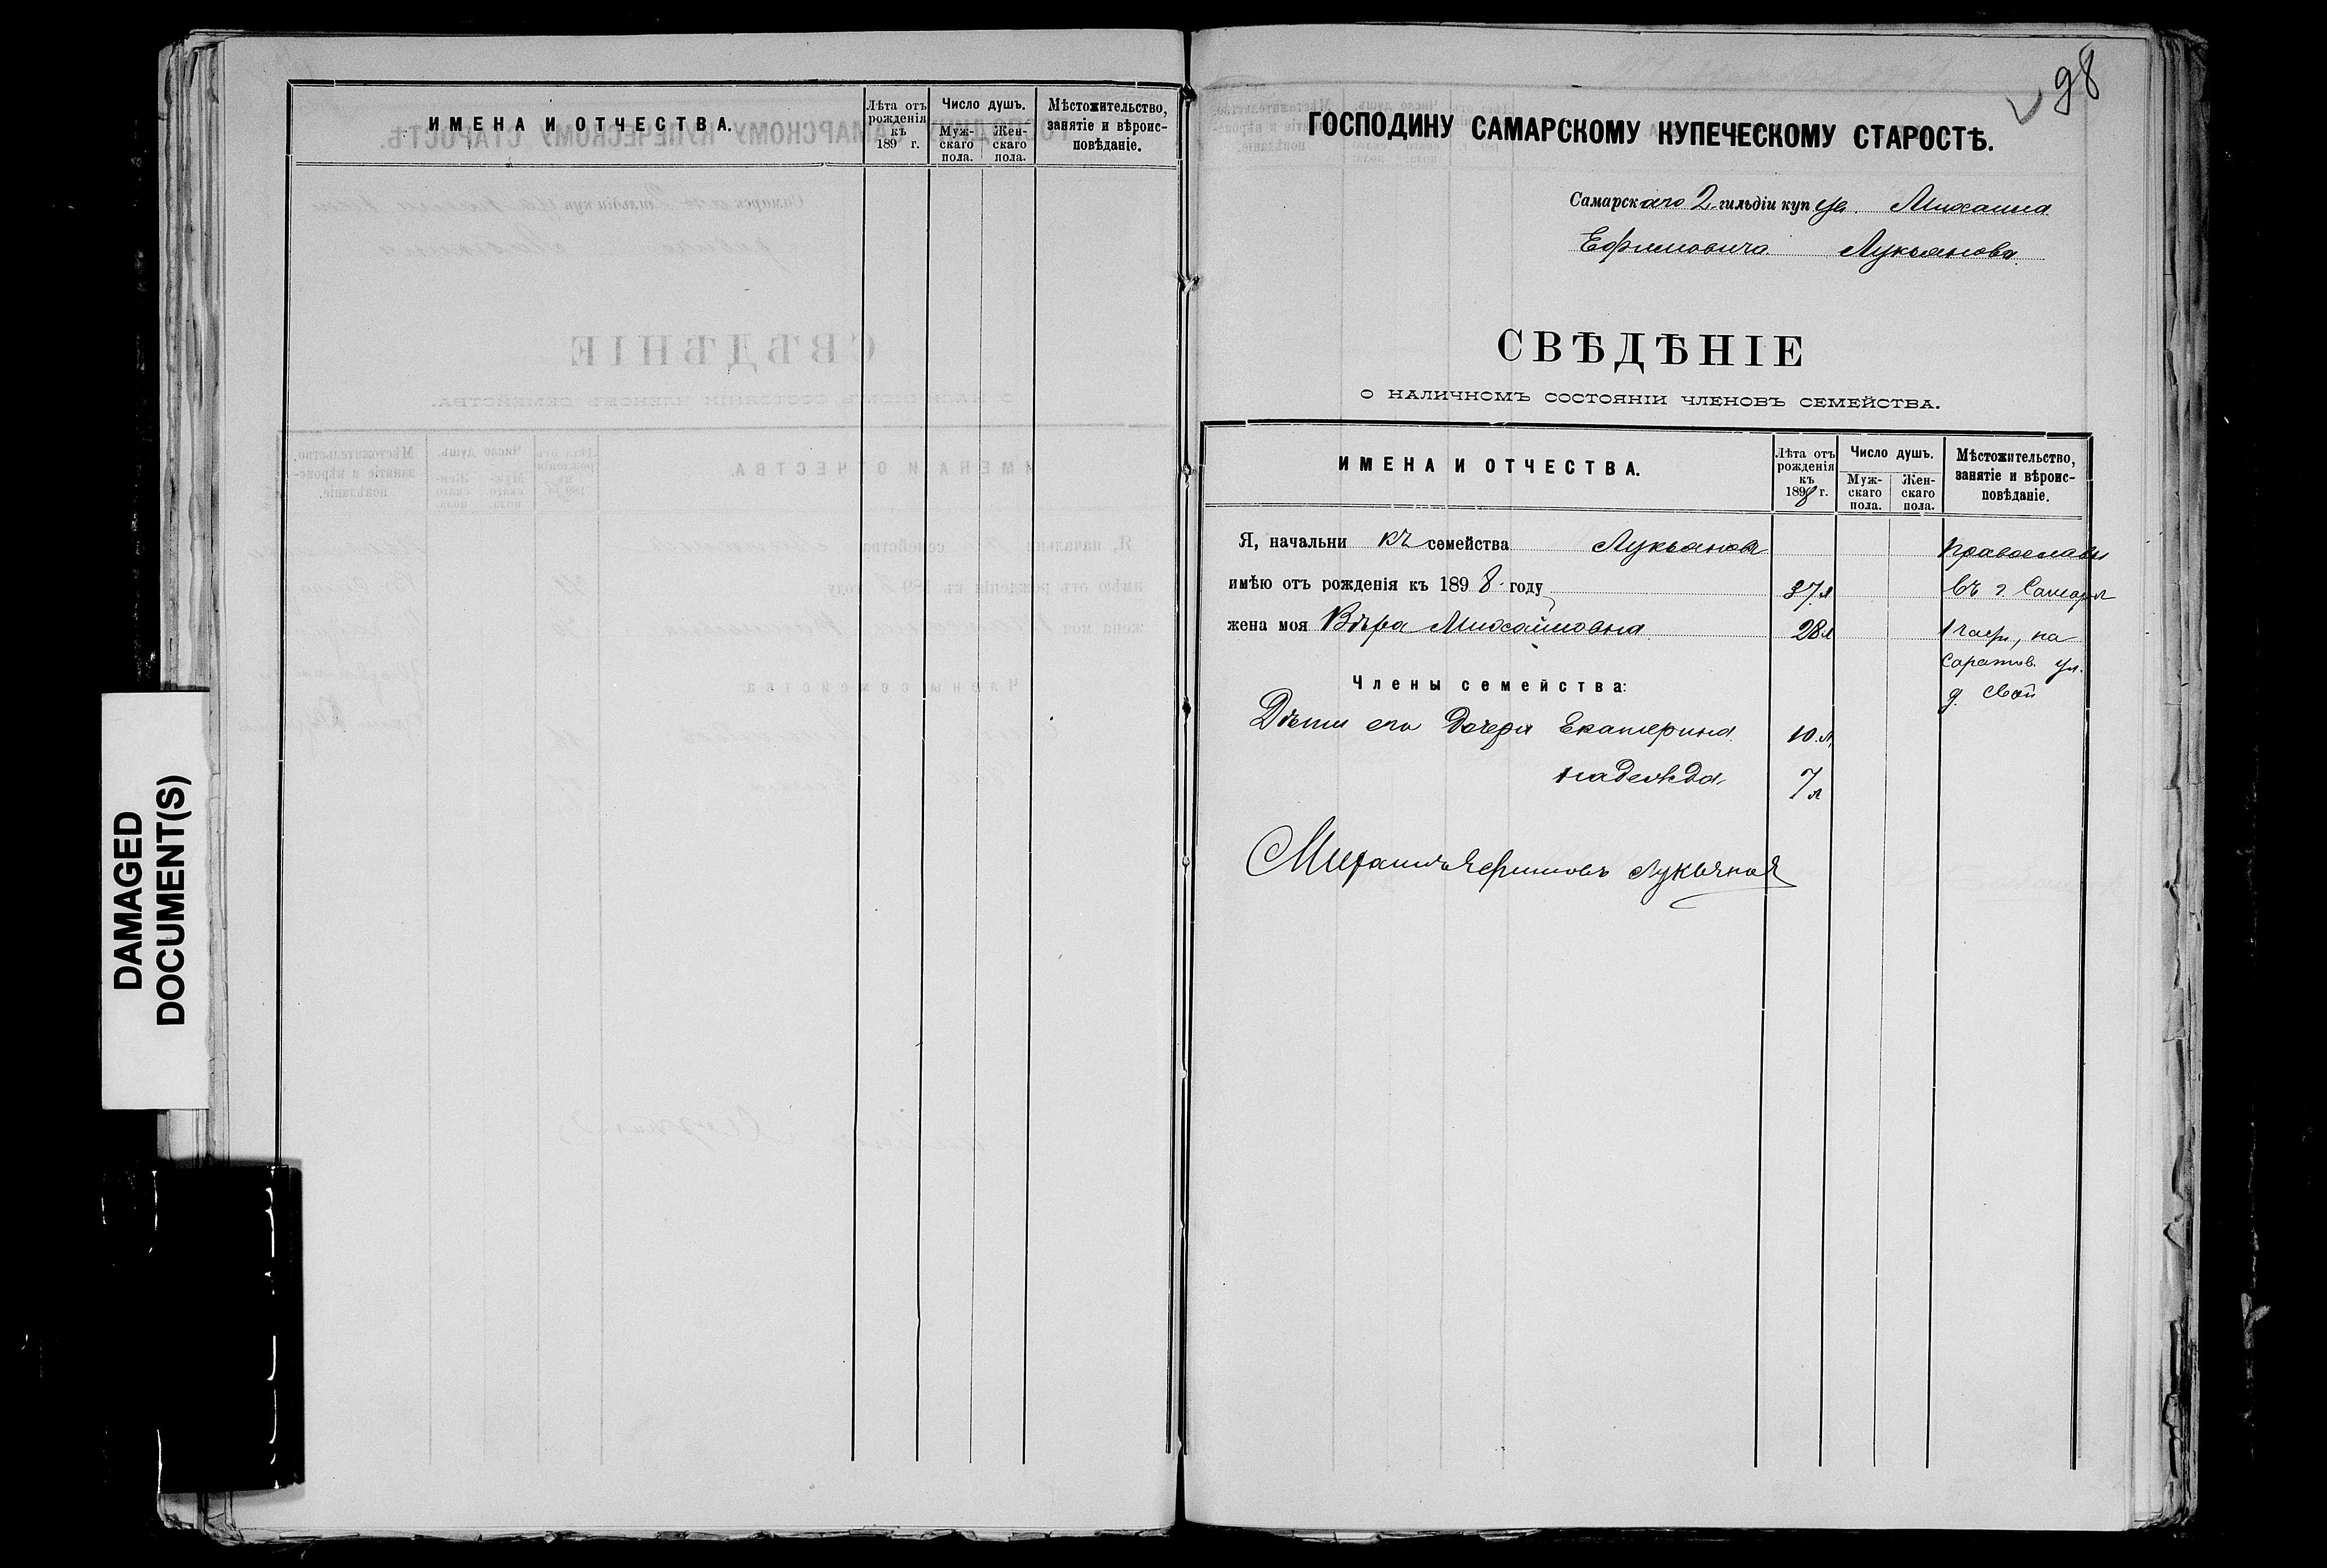 ИМЕНА И ОТЧЕСТВА.
Лѣта отъ рожденія къ 189 г.
Число душъ.
Муж-скаго пола.
Жен-скаго пола.
Мѣстожительство, занятіе и вѣроис-повѣданіе.
98
ГОСПОДИНУ САМАРСКОМУ КУПЕЧЕСКОМУ СТАРОСТѢ.
Самарскаго 2 гильдіи купца Михаила
Ефимовича Лукьянова
СВѢДѢНІЕ
О НАЛИЧНОМЪ СОСТОЯНІИ ЧЛЕНОВЪ СЕМЕЙСТВА.
ИМЕНА И ОТЧЕСТВА.
Лѣта отъ рожденія къ 1898 г.
Число душъ.
Муж-скаго пола.
Жен-скаго пола.
Мѣстожительство, занятіе и вѣроис-повѣданіе.
Я, начальникъ семейства Лукьянов православн
имѣю отъ рожденія къ 1898 году 37 л въ г. Самарѣ
жена моя Вѣра Михайловна 28 л 1 части, на
Саратов. ул.
Члены семейства: д. свой
Дѣти его Дочери Екатерина 10 л.
Надежда 7 л
Михаилъ Ефимовъ Лукьянов
DAMAGED
DOCUMENT(S)